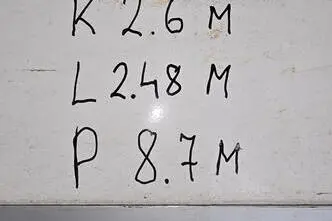 K 2.6 M
L 2.48 M
P 8.7 M